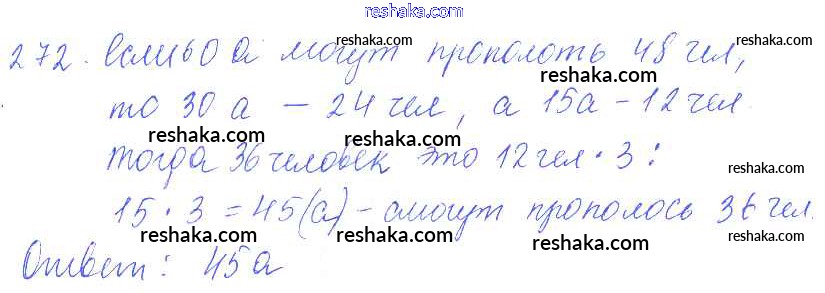 reshaka.com
272. Если 60 а могут прополоть 48 чел,
reshaka.com
reshaka.com
то 30 а – 24 чел, а 15а – 12 чел.
reshaka.com
reshaka.com
reshaka.com
тогда 36 человек это 12 чел · 3:
reshaka.com
reshaka.com
reshaka.com
15 · 3 = 45 (а) – смогут прополось 36 чел.
reshaka.com
reshaka.com
reshaka.com
Ответ: 45а
reshaka.com